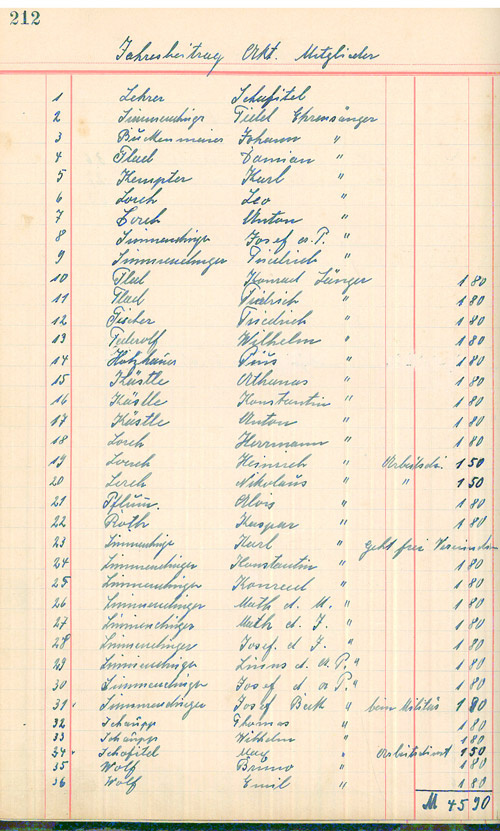 212
Jahresbeitrag Akt. Mitglieder
1 Lehrer Schofitel
2 Simmendinger Fidel Ehrensänger
3 Buckenmaier Johann "
4 Flad Damian "
5 Kempter Karl "
6 Lorch Leo "
7 Lorch Anton "
8 Simmendinger Josef a. P. "
9 Simmendinger Friedrich "
10 Flad Konrad Sänger 1 80
11 Flad Friedrich " 1 80
12 Fischer Friedrich " 1 80
13 Federolf Wilhelm " 1 80
14 Holzhauer Pius " 1 80
15 Kästle Athanas " 1 80
16 Kästle Konstantin " 1 80
17 Kästle Anton " 1 80
18 Lorch Herrmann " 1 80
19 Lorch Heinrich " Arbeitsdi. 1 50
20 Lorch Nikolaus " " 1 50
21 Pflum Alois " 1 80
22 Roth Kaspar " 1 80
23 Simmendinge Karl " geht frei Vereinsdien
24 Simmendinger Konstantin " 1 80
25 Simmendinger Konrad " 1 80
26 Simmendinger Math d. M. " 1 80
27 Simmendinger Math d. J. " 1 80
28 Simmendinger Josef. d J. " 1 80
29 Simmendinger Linus d. a. P. " 1 80
30 Simmendinger Josef d a P. " 1 80
31 Simmendinger Josef Beck " beim Militär 1 80
32 Schaupp Thomas " 1 80
33 Schaupp Wilhelm " 1 80
34 Schofitel Max " Arbeitsdienst 1 50
35 Wolf Bruno " 1 80
36 Wolf Emil " 1 80
M 45 90